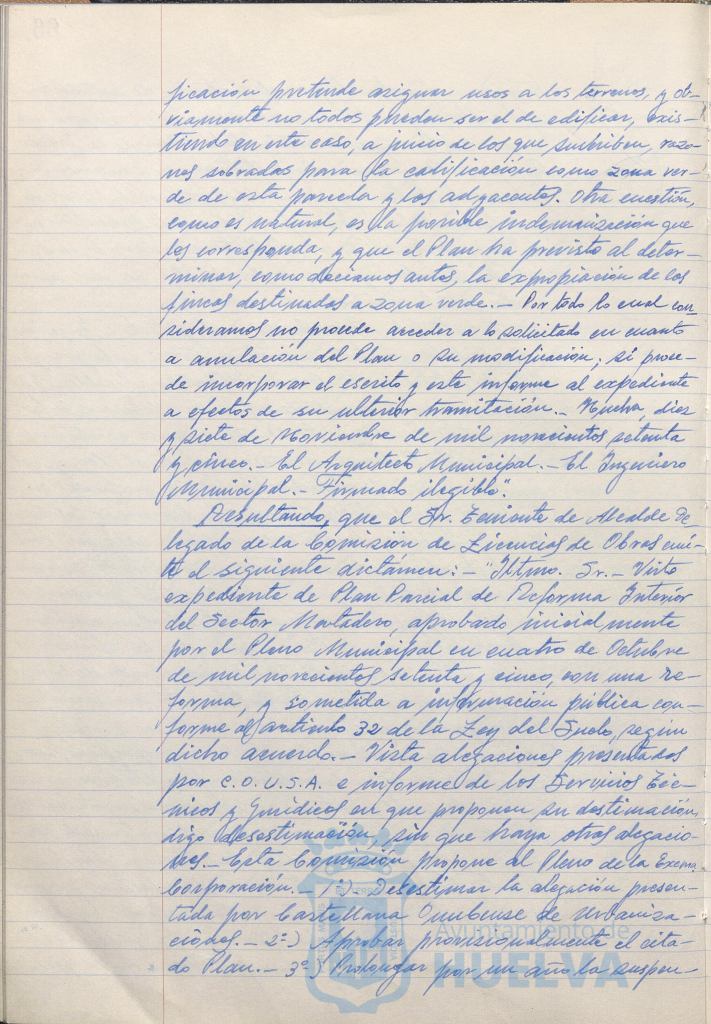 ficación pretende asignar usos a los terrenos, y ob-
viamente no todos pueden ser el de edificar, exis-
tiendo en este caso, a juicio de los que suscriben, razo-
nes sobradas para la calificación como zona ver-
de de esta parcela y los adyacentes. Otra cuestión,
como es natural, es la posible indemnización que
les corresponda, y que el Plan ha previsto al deter-
minar, como deciamos antes, la expropiación de las
fincas destinadas a zona verde.- Por todo lo cual con-
sideramos no procede acceder a lo solicitado en cuanto
a anulación del Plan o su modificación; si proce-
de incorporar el escrito y este informe al expediente
a efectos de su ulterior tramitación.- Huelva, diez
y siete de Noviembre de mil novecientos setenta
y cinco.- El Arquitecto Municipal.- El Ingeniero
Municipal.- Firmado ilegible".
Resultando, que el Sr. Teniente de Alcalde De-
legado de la Comisión de Licencias de Obras emi-
te el siguiente dictámen:- "Iltmo. Sr.- Visto
expediente de Plan Parcial de Reforma Interior
del Sector Matadero, aprobado inicialmente
por el Pleno Municipal en cuatro de Octubre
de mil novecientos setenta y cinco, con una re-
forma, y sometida a información pública con-
forme al artículo 32 de la Ley del Suelo, según
dicho acuerdo.- Vista alegaciones presentadas
por C.O.U.S.A. e informe de los Servicios Téc-
nicos y Jurídicos en que proponen su destimación,
digo desestimación, sin que haya otras alegacio-
nes.- Esta Comisión propone al Pleno de la Excma.
Corporación.- 1º)- Desestimar la alegación presen-
tada por Castellana Onubense de Urbaniza-
ciones.- 2º) Aprobar provisionalmente el cita-
do Plan.- 3º) Prolongar por un año la suspen-
Ayuntamiento de
HUELVA